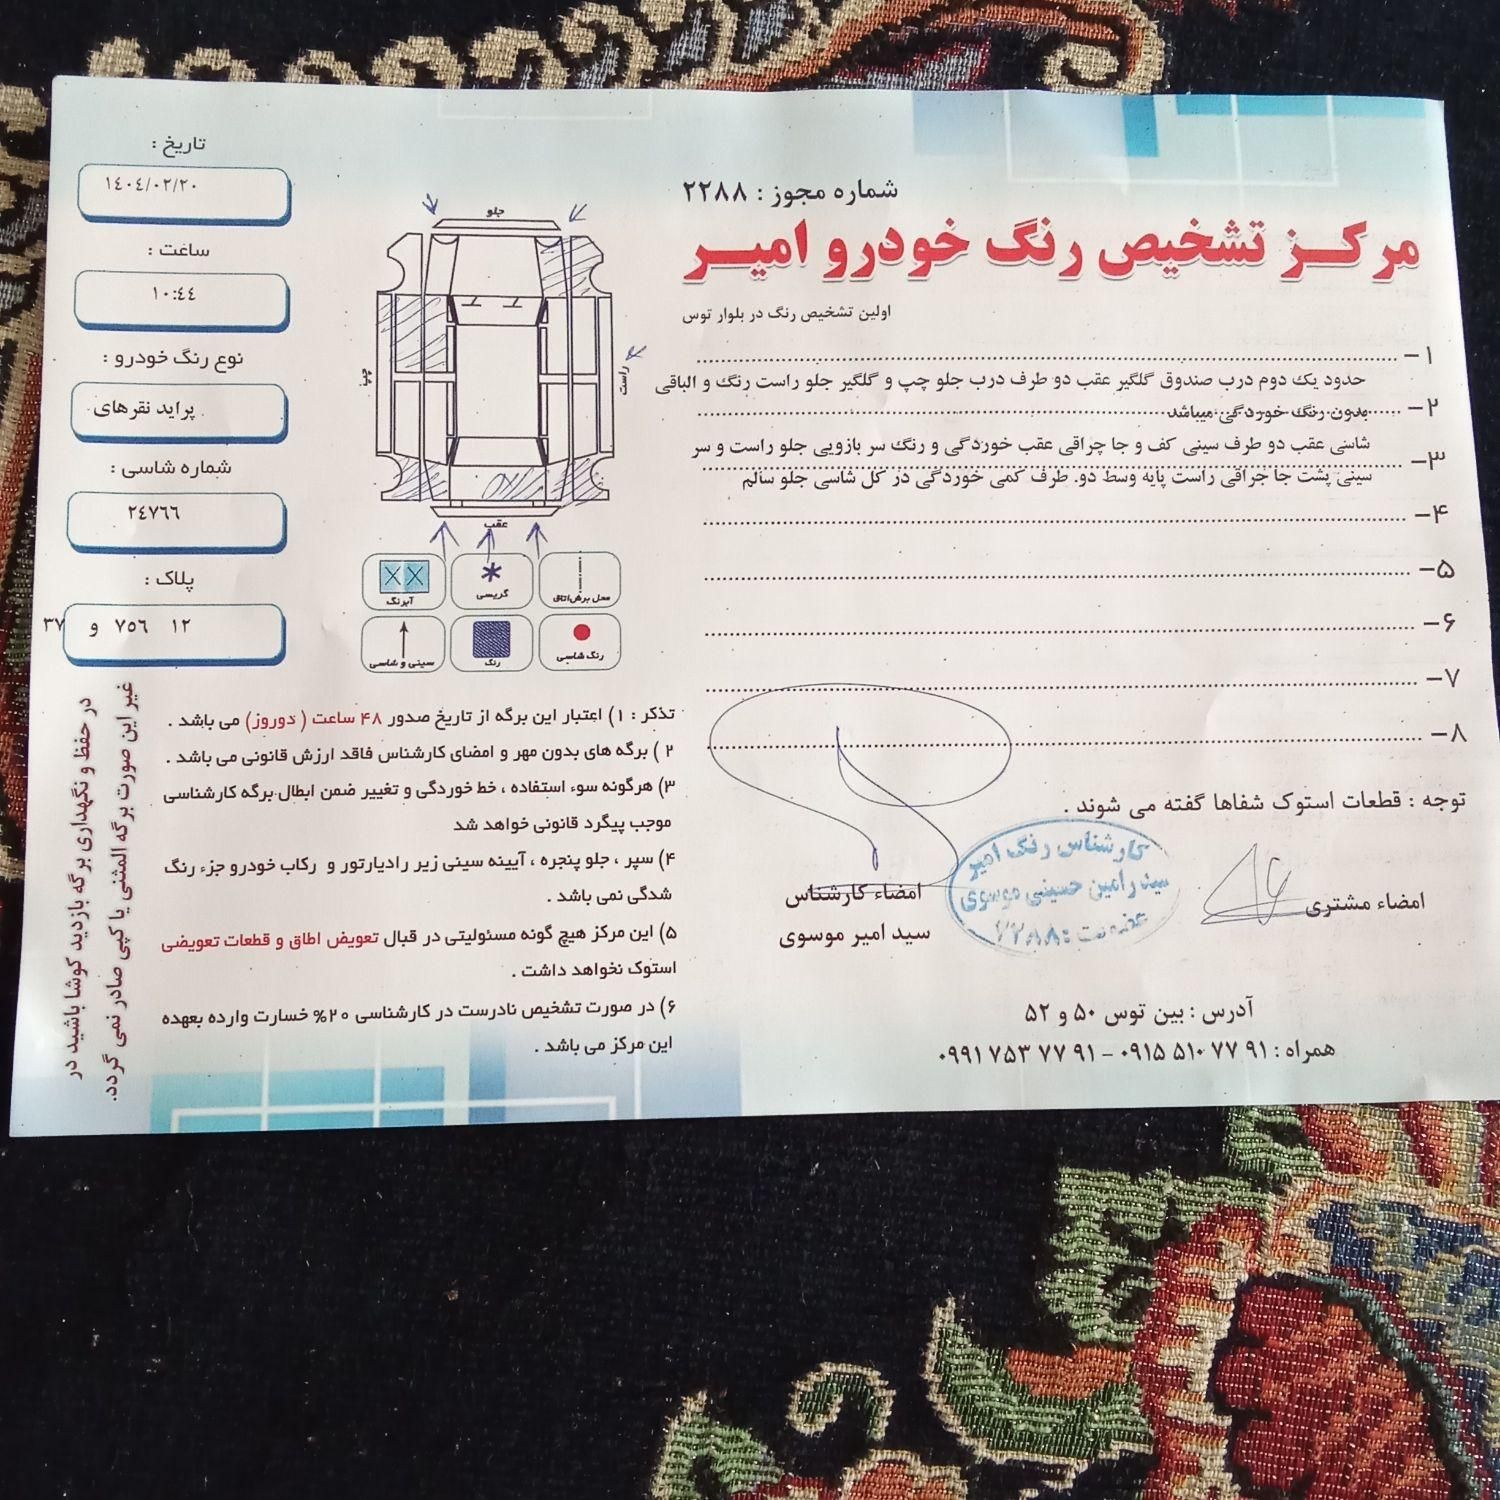 شماره مجوز : ۲۲۸۸
مرکز تشخیص رنگ خودرو امیر
اولین تشخیص رنگ در بلوار توس
۱-
حدود یک دوم درب صندوق گلگیر عقب دو طرف درب جلو چپ و گلگیر جلو راست رنگ و الباقی
۲-
بدون رنگ خوردگی میباشد
شاسی عقب دو طرف سینی کف و جا چراقی عقب خوردگی و رنگ سر بازویی جلو راست و سر
۳-
سینی پشت جا جراقی راست پایه وسط دو. طرف کمی خوردگی در کل شاسی جلو سالم
۴-
۵-
۶-
۷-
۸-
توجه : قطعات استوک شفاها گفته می شوند .
امضاء مشتری
کارشناس رنگ امیر
سید رامین حسینی موسوی
عضویت : ۲۲۸۸
امضاء کارشناس
سید امیر موسوی
آدرس : بین توس ۵۰ و ۵۲
همراه : ۹۱ ۷۷ ۵۱۰ ۰۹۱۵ - ۹۱ ۷۷ ۷۵۳ ۰۹۹۱
جلو
چپ
راست
عقب
محل برش اتاق
گریسی
آبرنگ
رنگ شاسی
رنگ
سینی و شاسی
تاریخ :
۱٤۰٤/۰۲/۲۰
ساعت :
۱۰:٤٤
نوع رنگ خودرو :
پراید نقرهای
شماره شاسی :
۲٤۷٦٦
پلاک :
۱۲ ۷٥٦ و ۳۷
تذکر : ۱) اعتبار این برگه از تاریخ صدور ۴۸ ساعت ( دوروز) می باشد .
۲ ) برگه های بدون مهر و امضای کارشناس فاقد ارزش قانونی می باشد .
۳) هرگونه سوء استفاده ، خط خوردگی و تغییر ضمن ابطال برگه کارشناسی
موجب پیگرد قانونی خواهد شد
۴) سپر ، جلو پنجره ، آیینه سینی زیر رادیارتور و رکاب خودرو جزء رنگ
شدگی نمی باشد .
۵) این مرکز هیچ گونه مسئولیتی در قبال تعویض اطاق و قطعات تعویضی
استوک نخواهد داشت .
۶) در صورت تشخیص نادرست در کارشناسی ۲۰% خسارت وارده بعهده
این مرکز می باشد .
در حفظ و نگهداری برگه بازدید کوشا باشید در
غیر این صورت برگه المثنی یا کپی صادر نمی گردد.